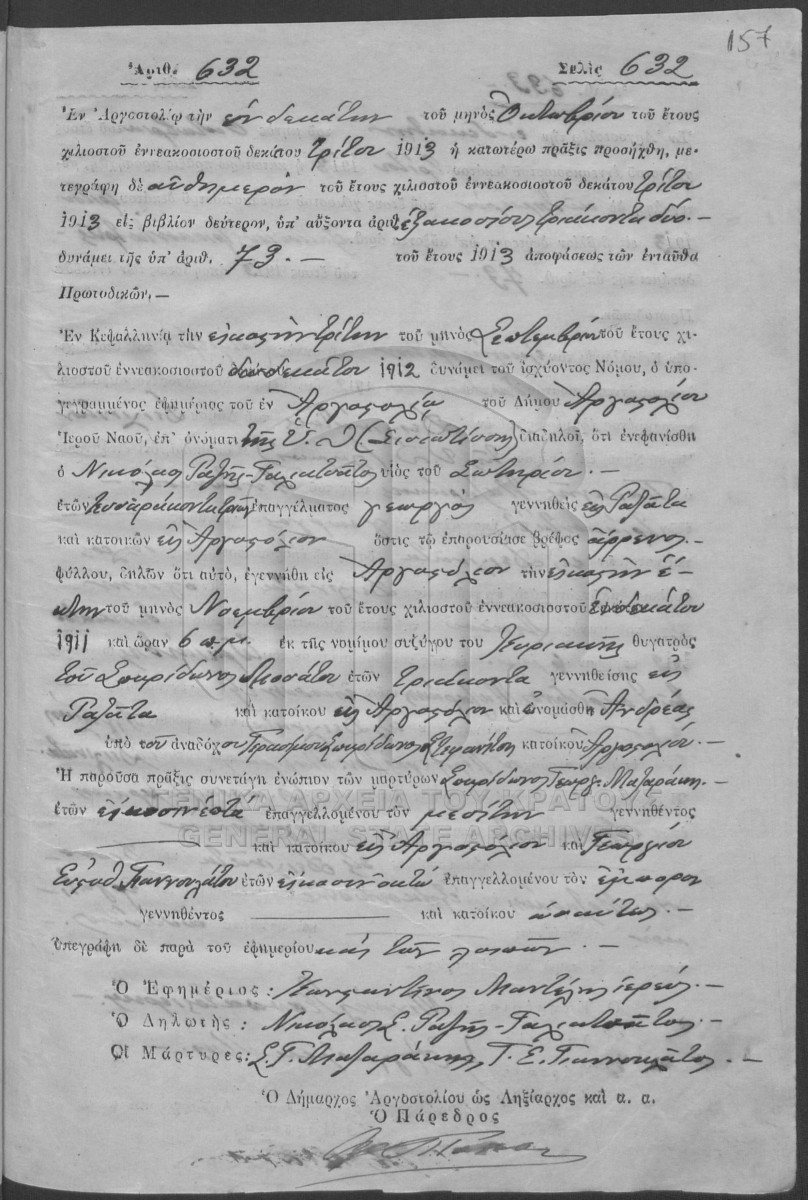 157
Ἀριθ. 632 Σελὶς 632
Ἐν Ἀργοστολίῳ τὴν ἑνδεκάτην τοῦ μηνὸς Ὀκτωβρίου τοῦ ἔτους
χιλιοστοῦ ἐννεακοσιοστοῦ δεκάτου τρίτου 1913 ἡ κατωτέρω πρᾶξις προσήχθη, με-
τεγράφη δὲ αὐθημερὸν τοῦ ἔτους χιλιοστοῦ ἐννεακοσιοστοῦ δεκάτου τρίτου
1913 εἰς βιβλίον δεύτερον, ὑπ' αὔξοντα ἀριθ. ἑξακόσια τριάκοντα δύο.—
δυνάμει τῆς ὑπ' ἀριθ. 73.— τοῦ ἔτους 1913 ἀποφάσεως τῶν ἐνταῦθα
Πρωτοδικῶν,—
Ἐν Κεφαλληνίᾳ τὴν εἰκοστὴν τρίτην τοῦ μηνὸς Σεπτεμβρίου τοῦ ἔτους χι-
λιοστοῦ ἐννεακοσιοστοῦ δωδεκάτου 1912 δυνάμει τοῦ ἰσχύοντος Νόμου, ὁ ὑπο-
γεγραμμένος ἐφημέριος τοῦ ἐν Ἀργοστολίῳ τοῦ Δήμου Ἀργοστολίου
Ἱεροῦ Ναοῦ, ἐπ' ὀνόματι τῆς Ὑ. Θ (Σισιωτίσσης) διαδηλοῖ, ὅτι ἐνεφανίσθη
ὁ Νικόλαος Ραζῆς-Γαλιατσάτος υἱὸς τοῦ Σωτηρίου.—
ἐτῶν τεσσαράκοντα τριῶν ἐπαγγέλματος γεωργὸς γεννηθεὶς εἰς Ραζάτα
καὶ κατοικῶν εἰς Ἀργοστόλιον ὅστις τῷ ἐπαρουσίασε βρέφος ἄρρενος.—
φύλλου, δηλῶν ὅτι αὐτὸ, ἐγεννήθη εἰς Ἀργοστόλιον τὴν εἰκοστὴν ἕ-
κτην τοῦ μηνὸς Νοεμβρίου τοῦ ἔτους χιλιοστοῦ ἐννεακοσιοστοῦ ἑνδεκάτου
1911 καὶ ὥραν 6 π.μ. ἐκ τῆς νομίμου συζύγου του Κυριακῆς θυγατρὸς
τοῦ Σπυρίδωνος ἐτῶν τριάκοντα γεννηθείσης εἰς
Ραζάτα καὶ κατοίκου εἰς Ἀργοστόλιον καὶ ὠνομάσθη Ἀνδρέας
ὑπὸ τοῦ ἀναδόχου Γερασίμου Σπυρίδωνος κατοίκου Ἀργοστολίου.—
Ἡ παροῦσα πρᾶξις συνετάγη ἐνώπιον τῶν μαρτύρων Σπυρίδωνος Γεωργ. Μαζαράκη.
ἐτῶν εἴκοσιν ἑπτὰ ἐπαγγελλομένου τὸν μεσίτην γεννηθέντος
καὶ κατοίκου εἰς Ἀργοστόλιον καὶ Γεωργίου
Εὐσταθ. Γιαννουλάτου ἐτῶν εἴκοσιν ὀκτὼ ἐπαγγελλομένου τὸν ἔμπορον
γεννηθέντος καὶ κατοίκου ὡσαύτως.—
Ὑπεγράφη δὲ παρὰ τοῦ ἐφημερίου καὶ τῶν λοιπῶν.—
Ὁ Ἐφημέριος: Κωνσταντῖνος ἱερεύς.—
Ὁ Δηλωτὴς: Νικόλαος Σ. Ραζῆς-Γαλιατσάτος.—
Οἱ Μάρτυρες: Σ. Γ. Μαζαράκης, Γ. Ε. Γιαννουλάτος.—
Ὁ Δήμαρχος Ἀργοστολίου ὡς Ληξίαρχος καὶ α. α.
Ὁ Πάρεδρος
ΓΕΝΙΚΑ ΑΡΧΕΙΑ ΤΟΥ ΚΡΑΤΟΥΣ
GENERAL STATE ARCHIVES